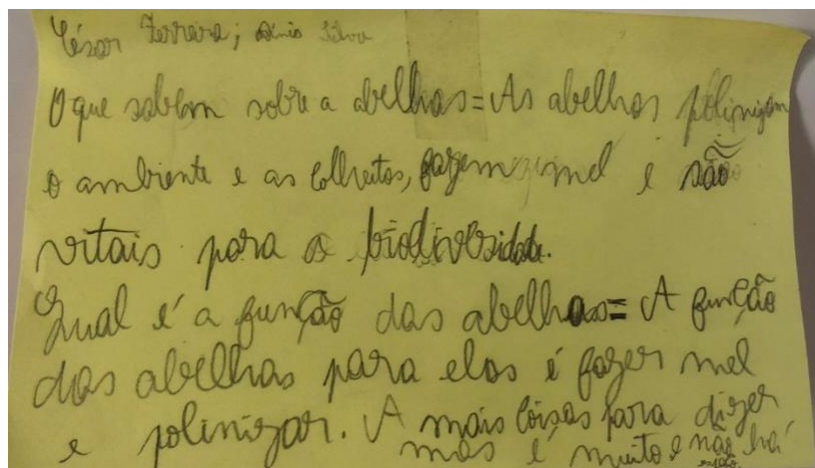 César Ferreira; Dinis Silva
O que sabem sobre a abelhas=As abelhas polinizam
o ambiente e as colheitas, fazem mel e são
vitais para a biodiversidade.
Qual é a função das abelhas= A função
das abelhas para elas é fazer mel
e polinizar. A mais coisas para dizer
mas é muito e não há